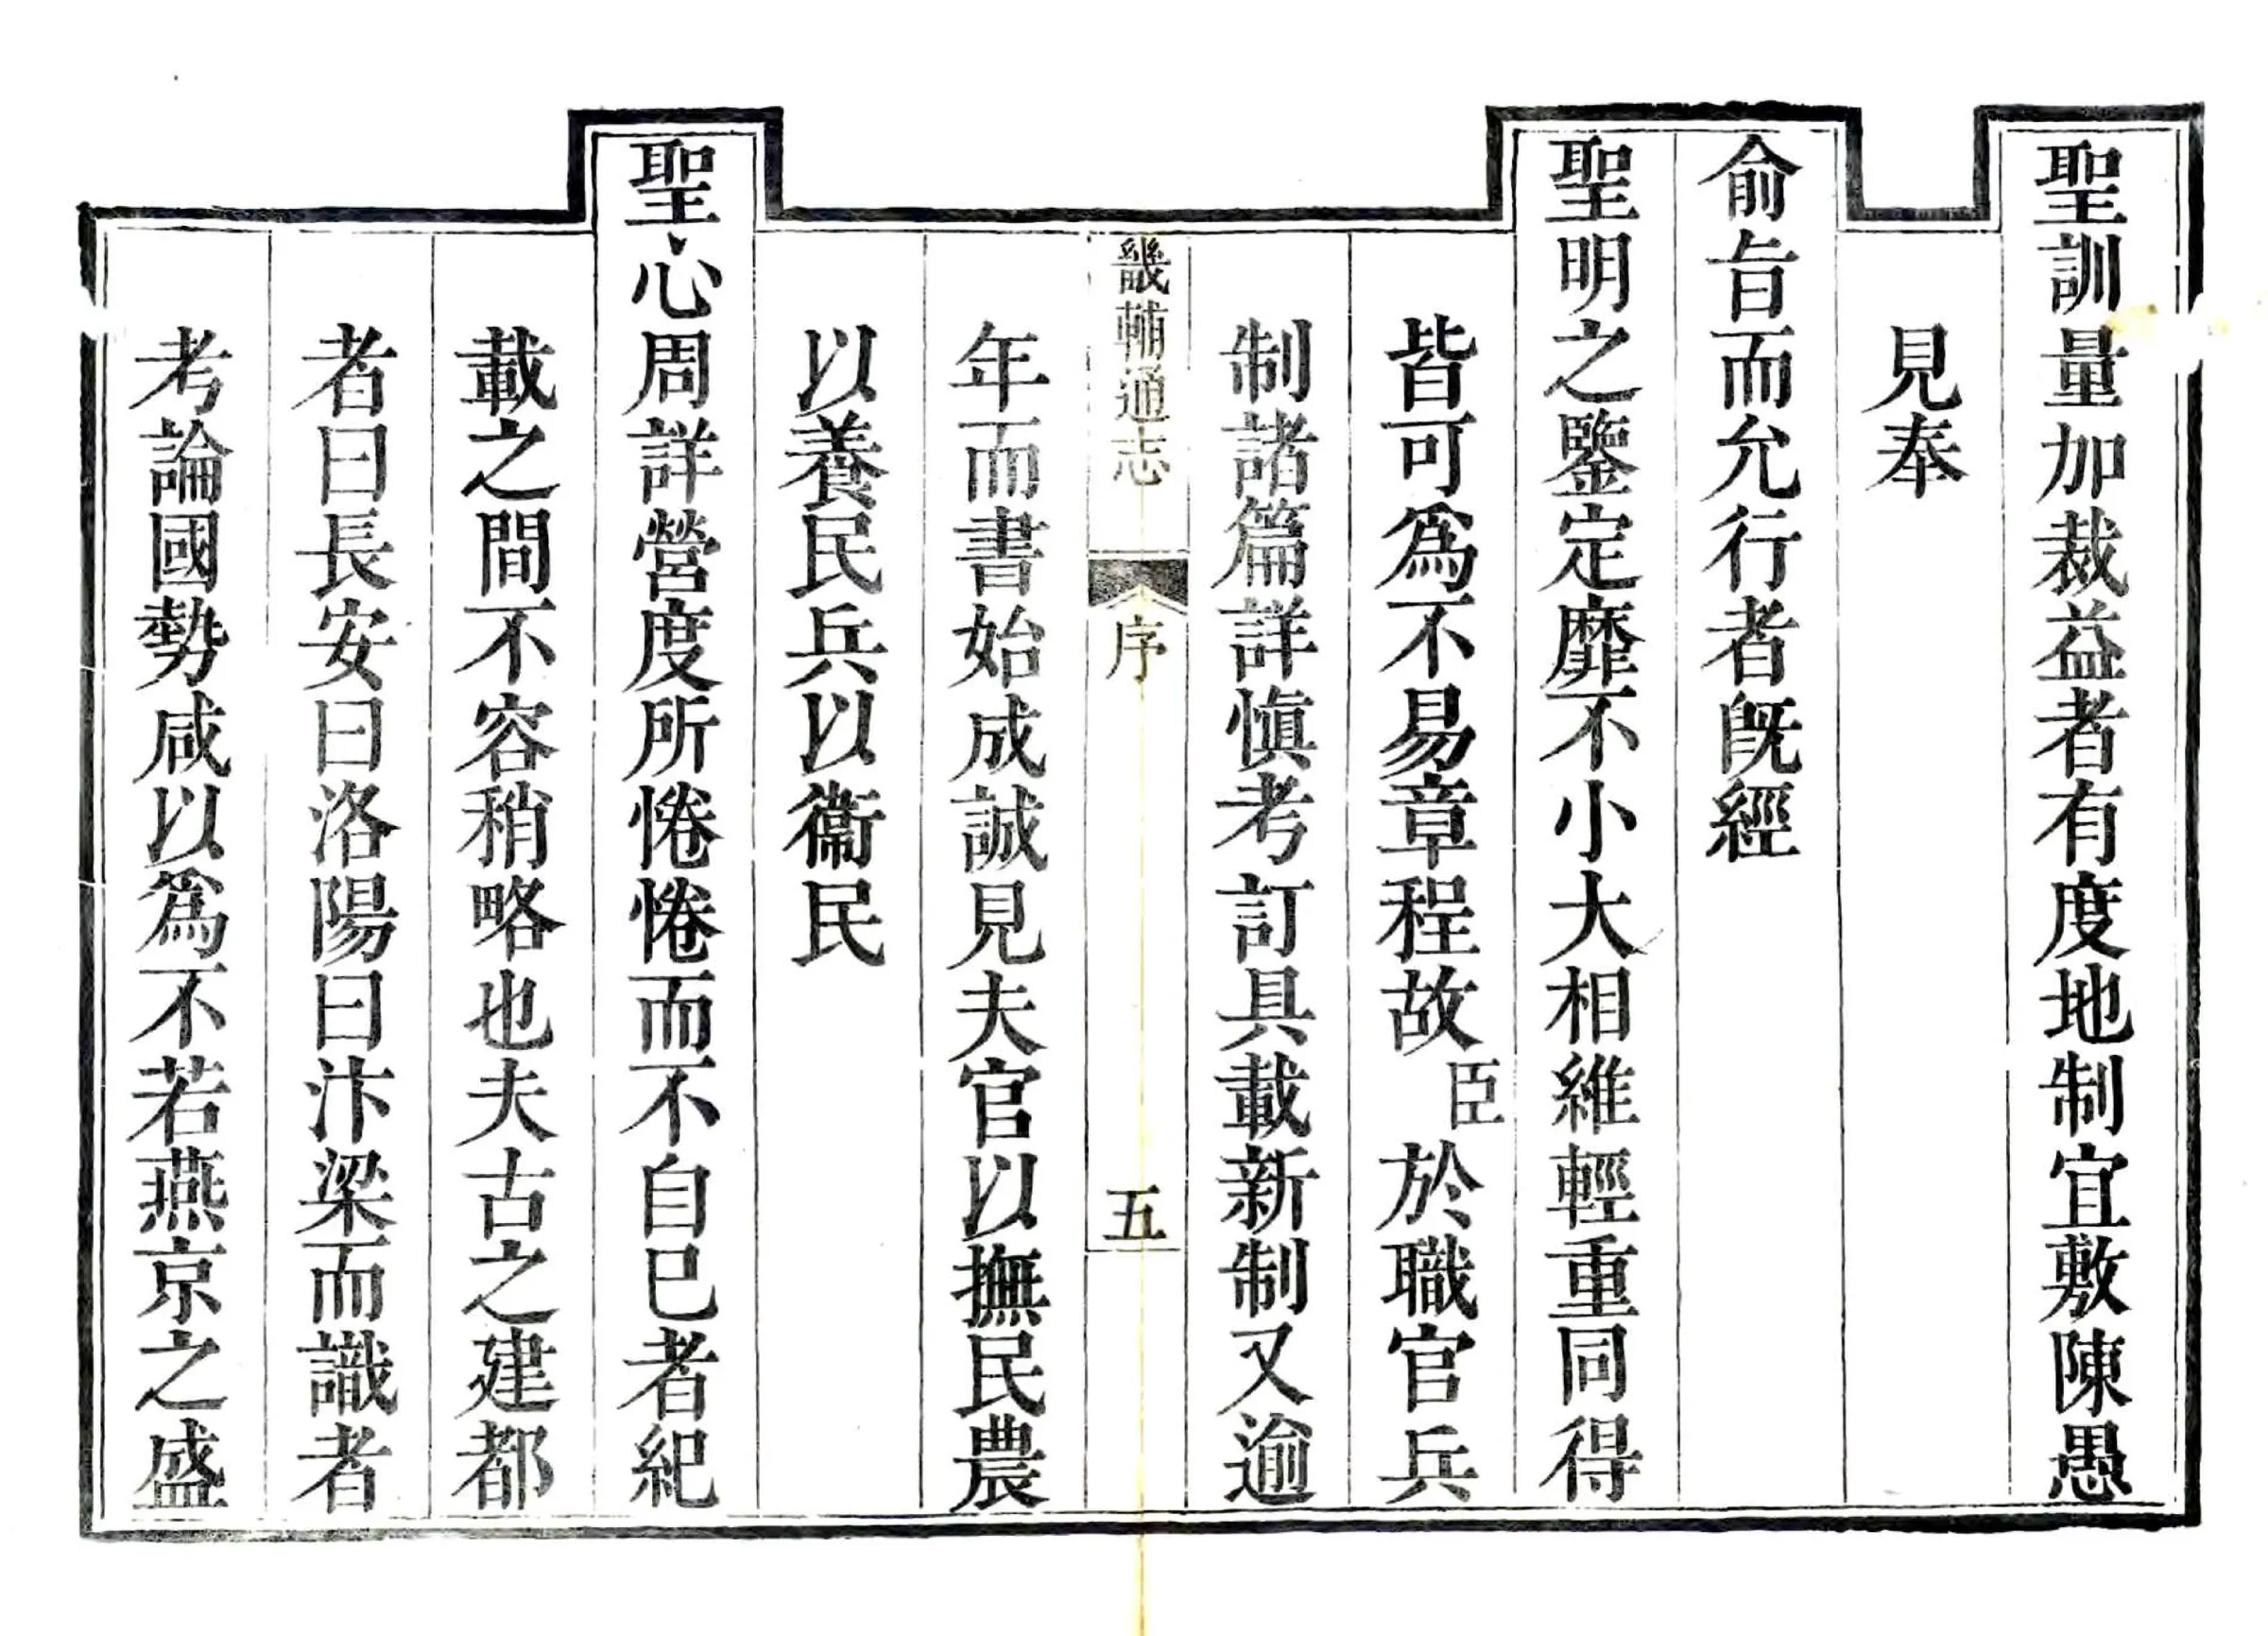 聖訓量加裁益者有度地制宜敷陳愚
見奉
俞旨而允行者旣經
聖明之鑒定靡不小大相維輕重同得
皆可爲不易章程故臣於職官兵
制諸篇詳愼考訂具載新制又逾
畿輔通志 序 五
年而書始成誠見夫官以撫民農
以養民兵以衞民
聖心周詳營度所惓惓而不自已者紀
載之間不容稍略也夫古之建都
者曰長安曰洛陽曰汴梁而識者
考論國勢咸以爲不若燕京之盛